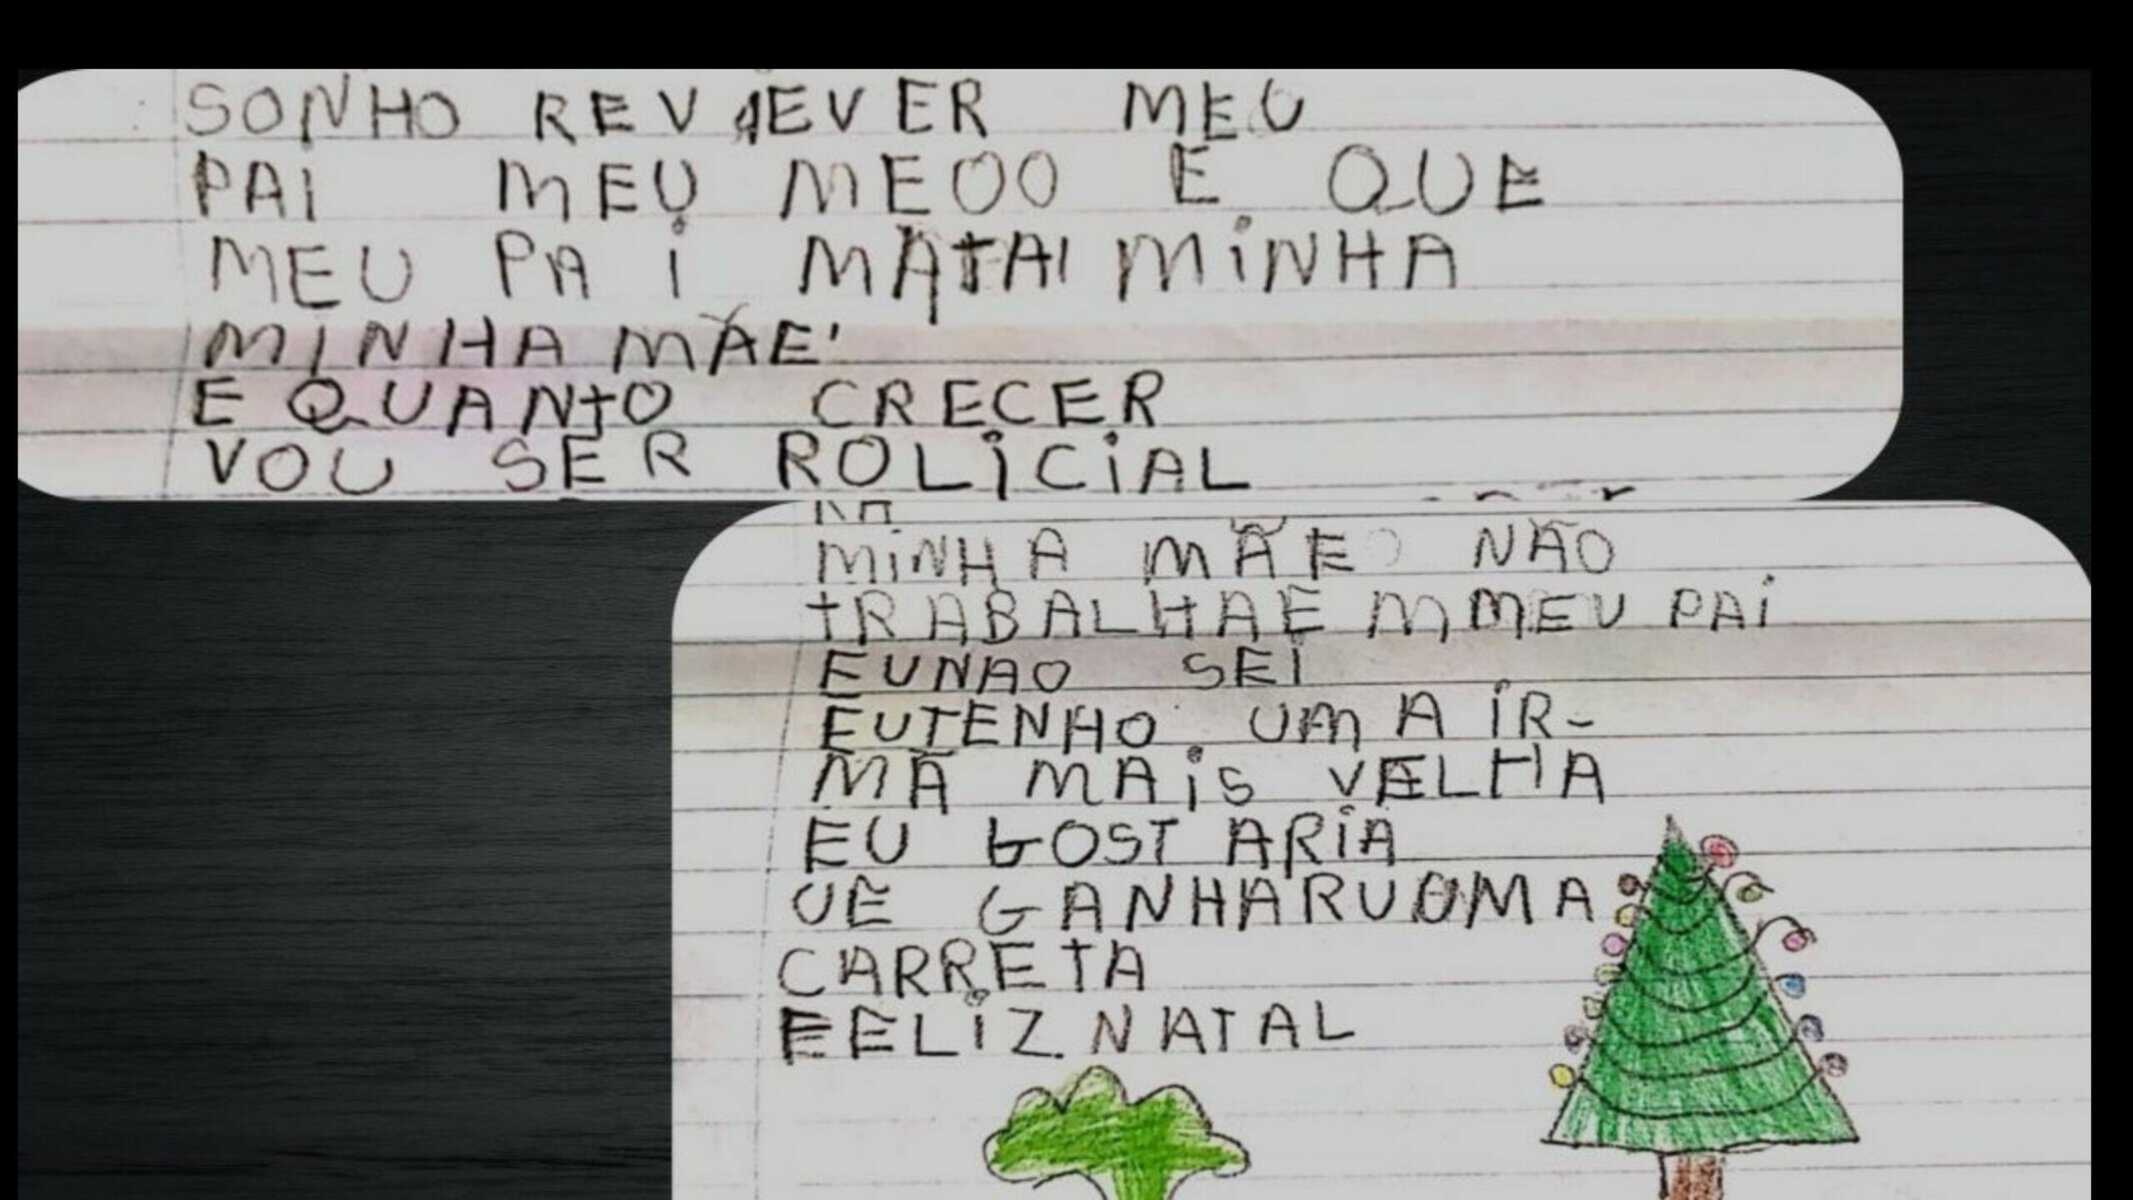 SONHO REV EVER MEU
PAI MEU MEOO E QUE
MEU PAI MATAI MINHA
MINHA MÃE'
E QUANTO CRECER
VOU SER ROLICIAL
MINHA MÃE NÃO
TRABALHAE M MEU PAI
EUNAO SEI
EUTENHO UMA IR-
MÃ MAIS VELHA
EU GOSTARIA
UE GANHARUOMA
CARRETA
FELIZ NATAL